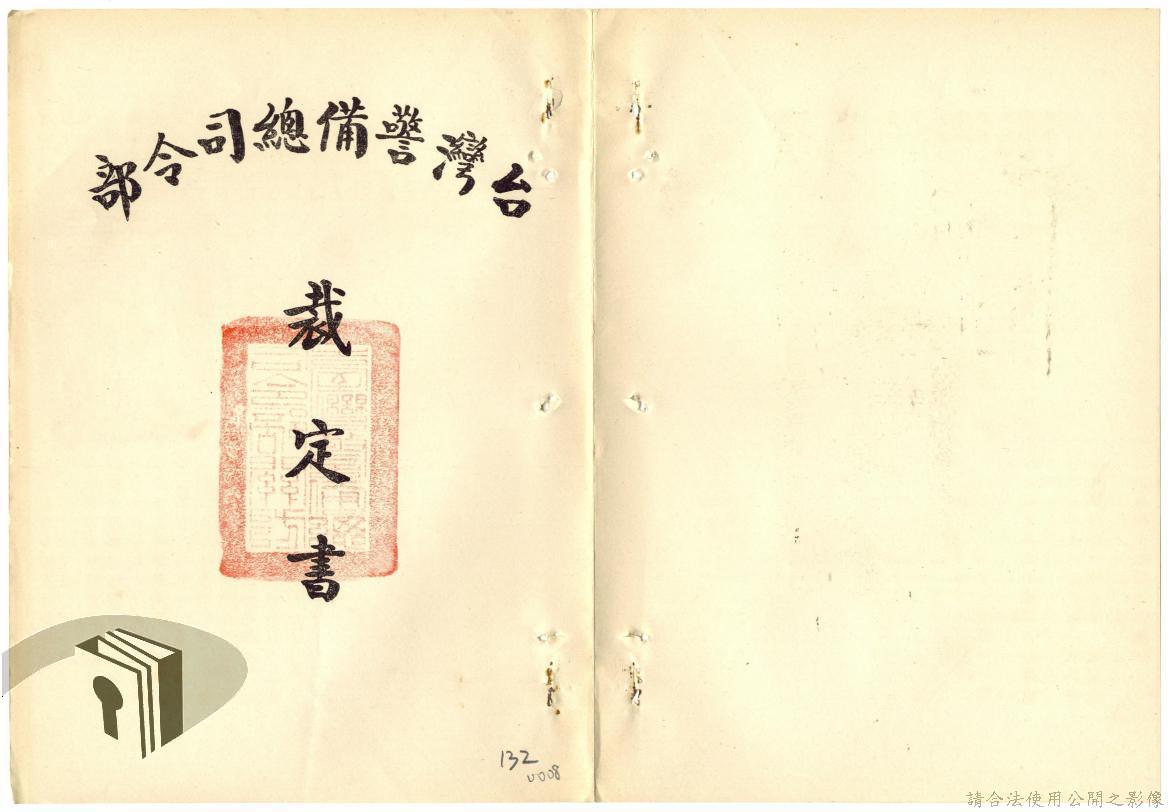 台灣警備總司令部
裁定書
132
0008
請合法使用公開之影像